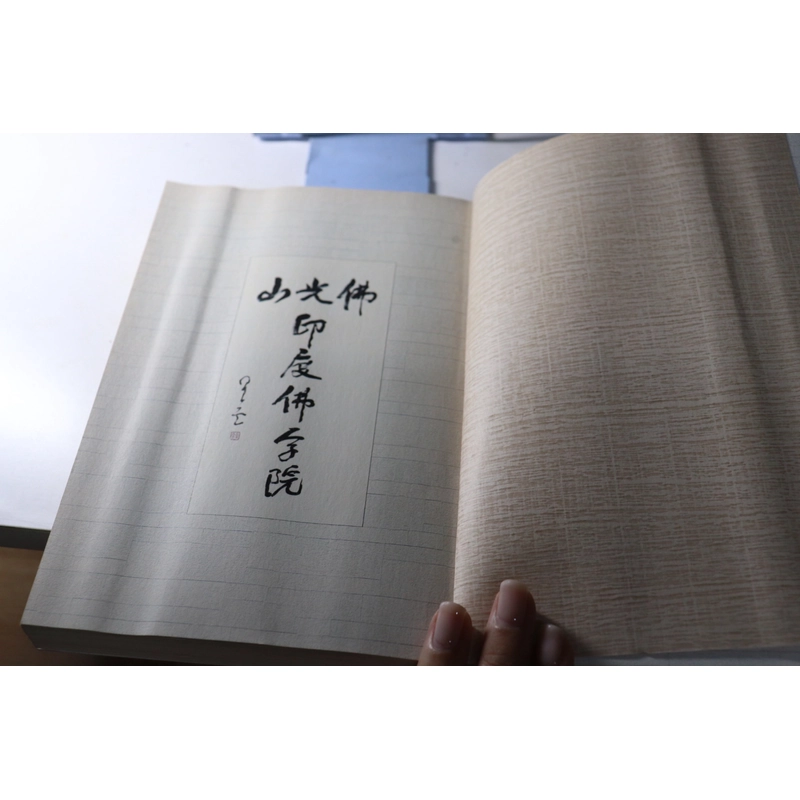 佛光山
印度佛学院
星云